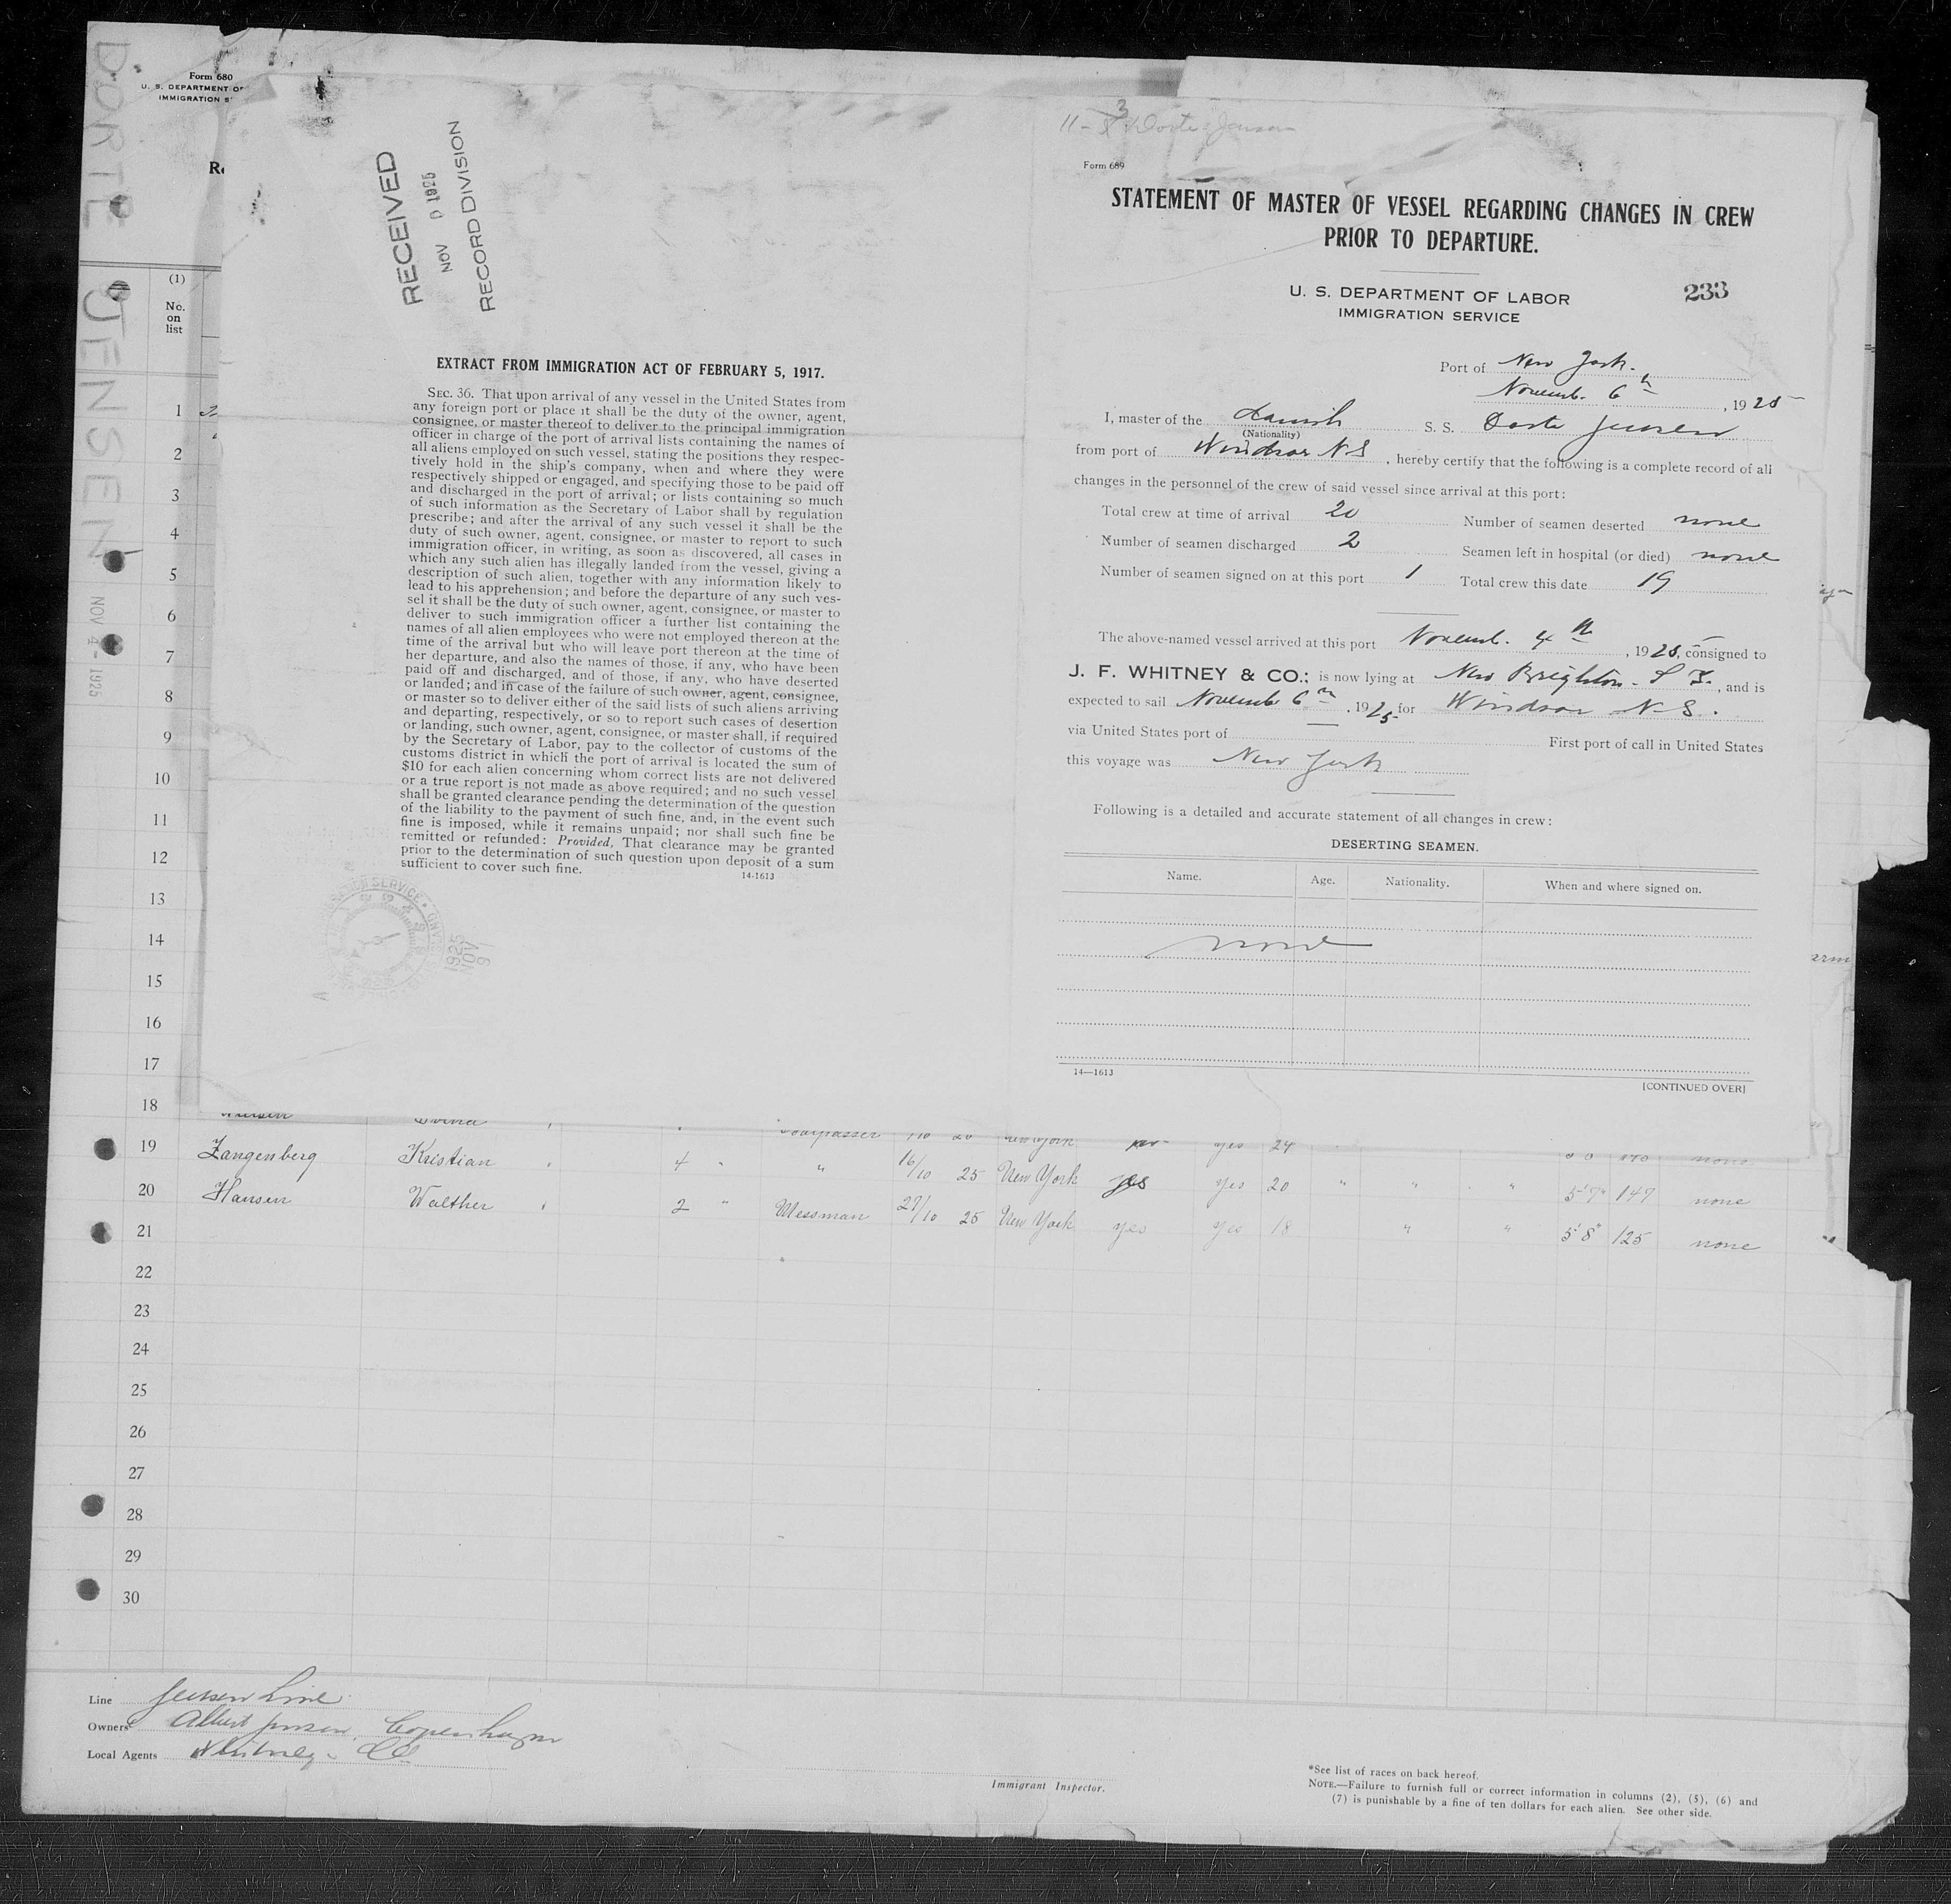 DORTE JENSEN NOV 4 - 1925
Form 680
U. S. DEPARTMENT OF
IMMIGRATION S
RECEIVED
NOV 9 1925
RECORD DIVISION
EXTRACT FROM IMMIGRATION ACT OF FEBRUARY 5, 1917.
SEC. 36. That upon arrival of any vessel in the United States from
any foreign port or place it shall be the duty of the owner, agent,
consignee, or master thereof to deliver to the principal immigration
officer in charge of the port of arrival lists containing the names of
all aliens employed on such vessel, stating the positions they respec-
tively hold in the ship's company, when and where they were
respectively shipped or engaged, and specifying those to be paid off
and discharged in the port of arrival; or lists containing so much
of such information as the Secretary of Labor shall by regulation
prescribe; and after the arrival of any such vessel it shall be the
duty of such owner, agent, consignee, or master to report to such
immigration officer, in writing, as soon as discovered, all cases in
which any such alien has illegally landed from the vessel, giving a
description of such alien, together with any information likely to
lead to his apprehension; and before the departure of any such ves-
sel it shall be the duty of such owner, agent, consignee, or master to
deliver to such immigration officer a further list containing the
names of all alien employees who were not employed thereon at the
time of the arrival but who will leave port thereon at the time of
her departure, and also the names of those, if any, who have been
paid off and discharged, and of those, if any, who have deserted
or landed; and in case of the failure of such owner, agent, consignee,
or master so to deliver either of the said lists of such aliens arriving
and departing, respectively, or so to report such cases of desertion
or landing, such owner, agent, consignee, or master shall, if required
by the Secretary of Labor, pay to the collector of customs of the
customs district in which the port of arrival is located the sum of
$10 for each alien concerning whom correct lists are not delivered
or a true report is not made as above required; and no such vessel
shall be granted clearance pending the determination of the question
of the liability to the payment of such fine, and, in the event such
fine is imposed, while it remains unpaid; nor shall such fine be
remitted or refunded: Provided, That clearance may be granted
prior to the determination of such question upon deposit of a sum
sufficient to cover such fine.
14-1613
1925
NOV
9
11-3 Dorte Jensen
Form 689
STATEMENT OF MASTER OF VESSEL REGARDING CHANGES IN CREW
PRIOR TO DEPARTURE.
U. S. DEPARTMENT OF LABOR
IMMIGRATION SERVICE
233
Port of New York.
Novemb. 6th, 1925
I, master of the Danish S. S. Dorte Jensen
(Nationality)
from port of Windsor N S, hereby certify that the following is a complete record of all
changes in the personnel of the crew of said vessel since arrival at this port:
Total crew at time of arrival 20 Number of seamen deserted none
Number of seamen discharged 2 Seamen left in hospital (or died) none
Number of seamen signed on at this port 1 Total crew this date 19
The above-named vessel arrived at this port Novemb. 4th, 1925, consigned to
J. F. WHITNEY & CO.; is now lying at New Brighton. S I., and is
expected to sail Novemb 6th, 1925 for Windsor N-S.
via United States port of First port of call in United States
this voyage was New York
Following is a detailed and accurate statement of all changes in crew:
DESERTING SEAMEN.
Name. Age. Nationality. When and where signed on.
none
14—1613
[CONTINUED OVER]
(1)
No.
on
list
1
2
3
4
5
6
7
8
9
10
11
12
13
14
15
16
17
18
yes 24
19 Zangenberg Kristian 4 " " 16/10 25 New York yes yes 20 " " " 5'7" 147 none
20 Hansen Walther 2 " Messman 27/10 25 New York yes yes 18 " " 5'8" 125 none
21
22
23
24
25
26
27
28
29
30
Line Jensen Line
Owners Albert Jensen, Copenhagen
Local Agents Whitney & Co
Immigrant Inspector.
*See list of races on back hereof.
NOTE.—Failure to furnish full or correct information in columns (2), (5), (6) and
(7) is punishable by a fine of ten dollars for each alien. See other side.